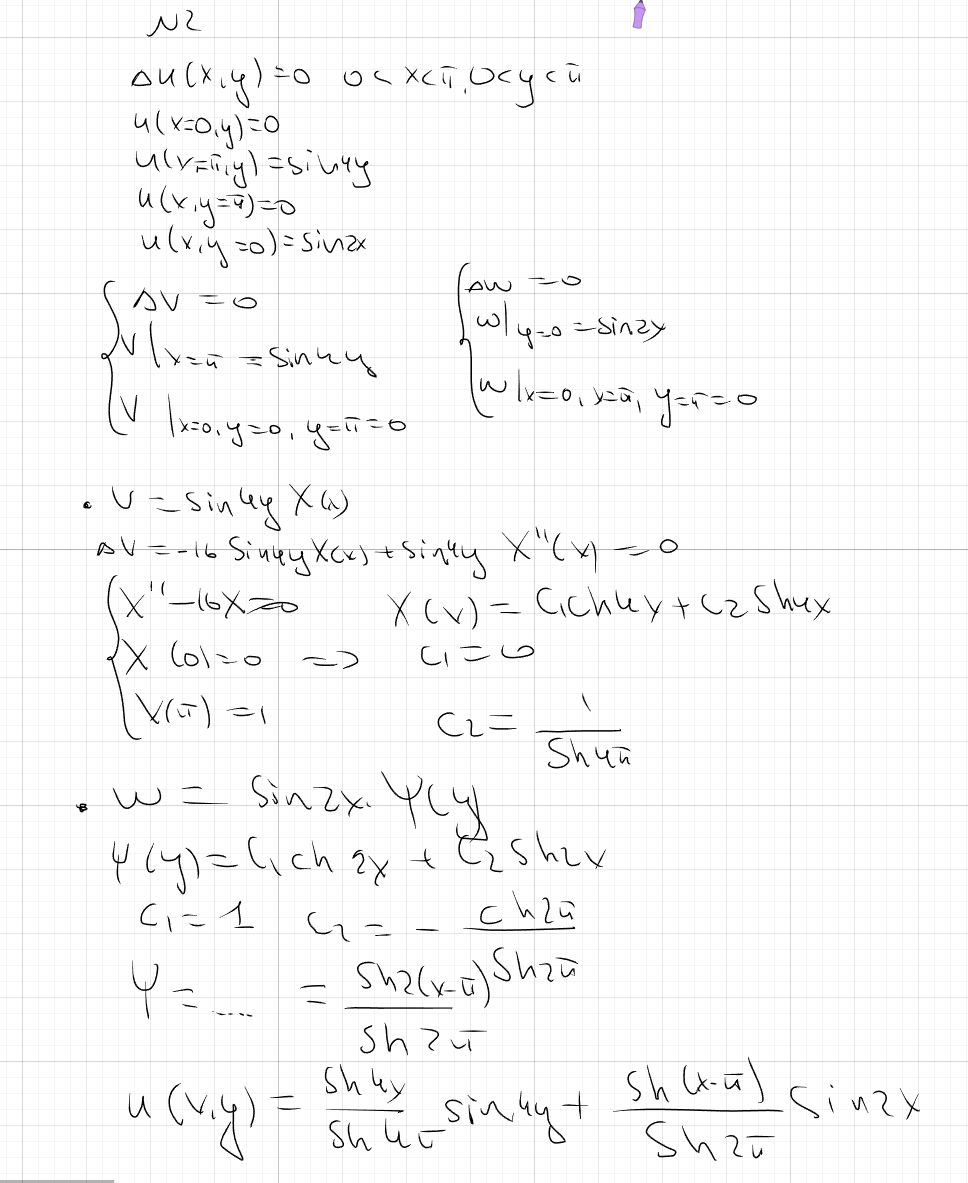 N2
Δu(x,y)=0 0<x<π, 0<y<π
u(x=0,y)=0
u(x=π,y)=sin4y
u(x,y=π)=0
u(x,y=0)=sin2x
{ΔV=0
V|x=π = sin4y
V|x=0, y=0, y=π=0
{Δw=0
w|y=0=sin2x
w|x=0, x=π, y=π=0
• V=sin4y X(x)
ΔV=-16 sin4y X(x)+sin4y X''(x)=0
{X''-16X=0 X(x)=C1ch4x+C2sh4x
X(0)=0 => C1=0
X(π)=1 C2=1/sh4π
• w = sin2x·Ψ(y)
Ψ(y)=C1ch2x + C2sh2x
C1=1 C2=-ch2π/sh2π
Ψ=.... = sh2(x-π)/sh2π
u(x,y)=sh4x/sh4π sin4y+sh(x-π)/sh2π sin2x